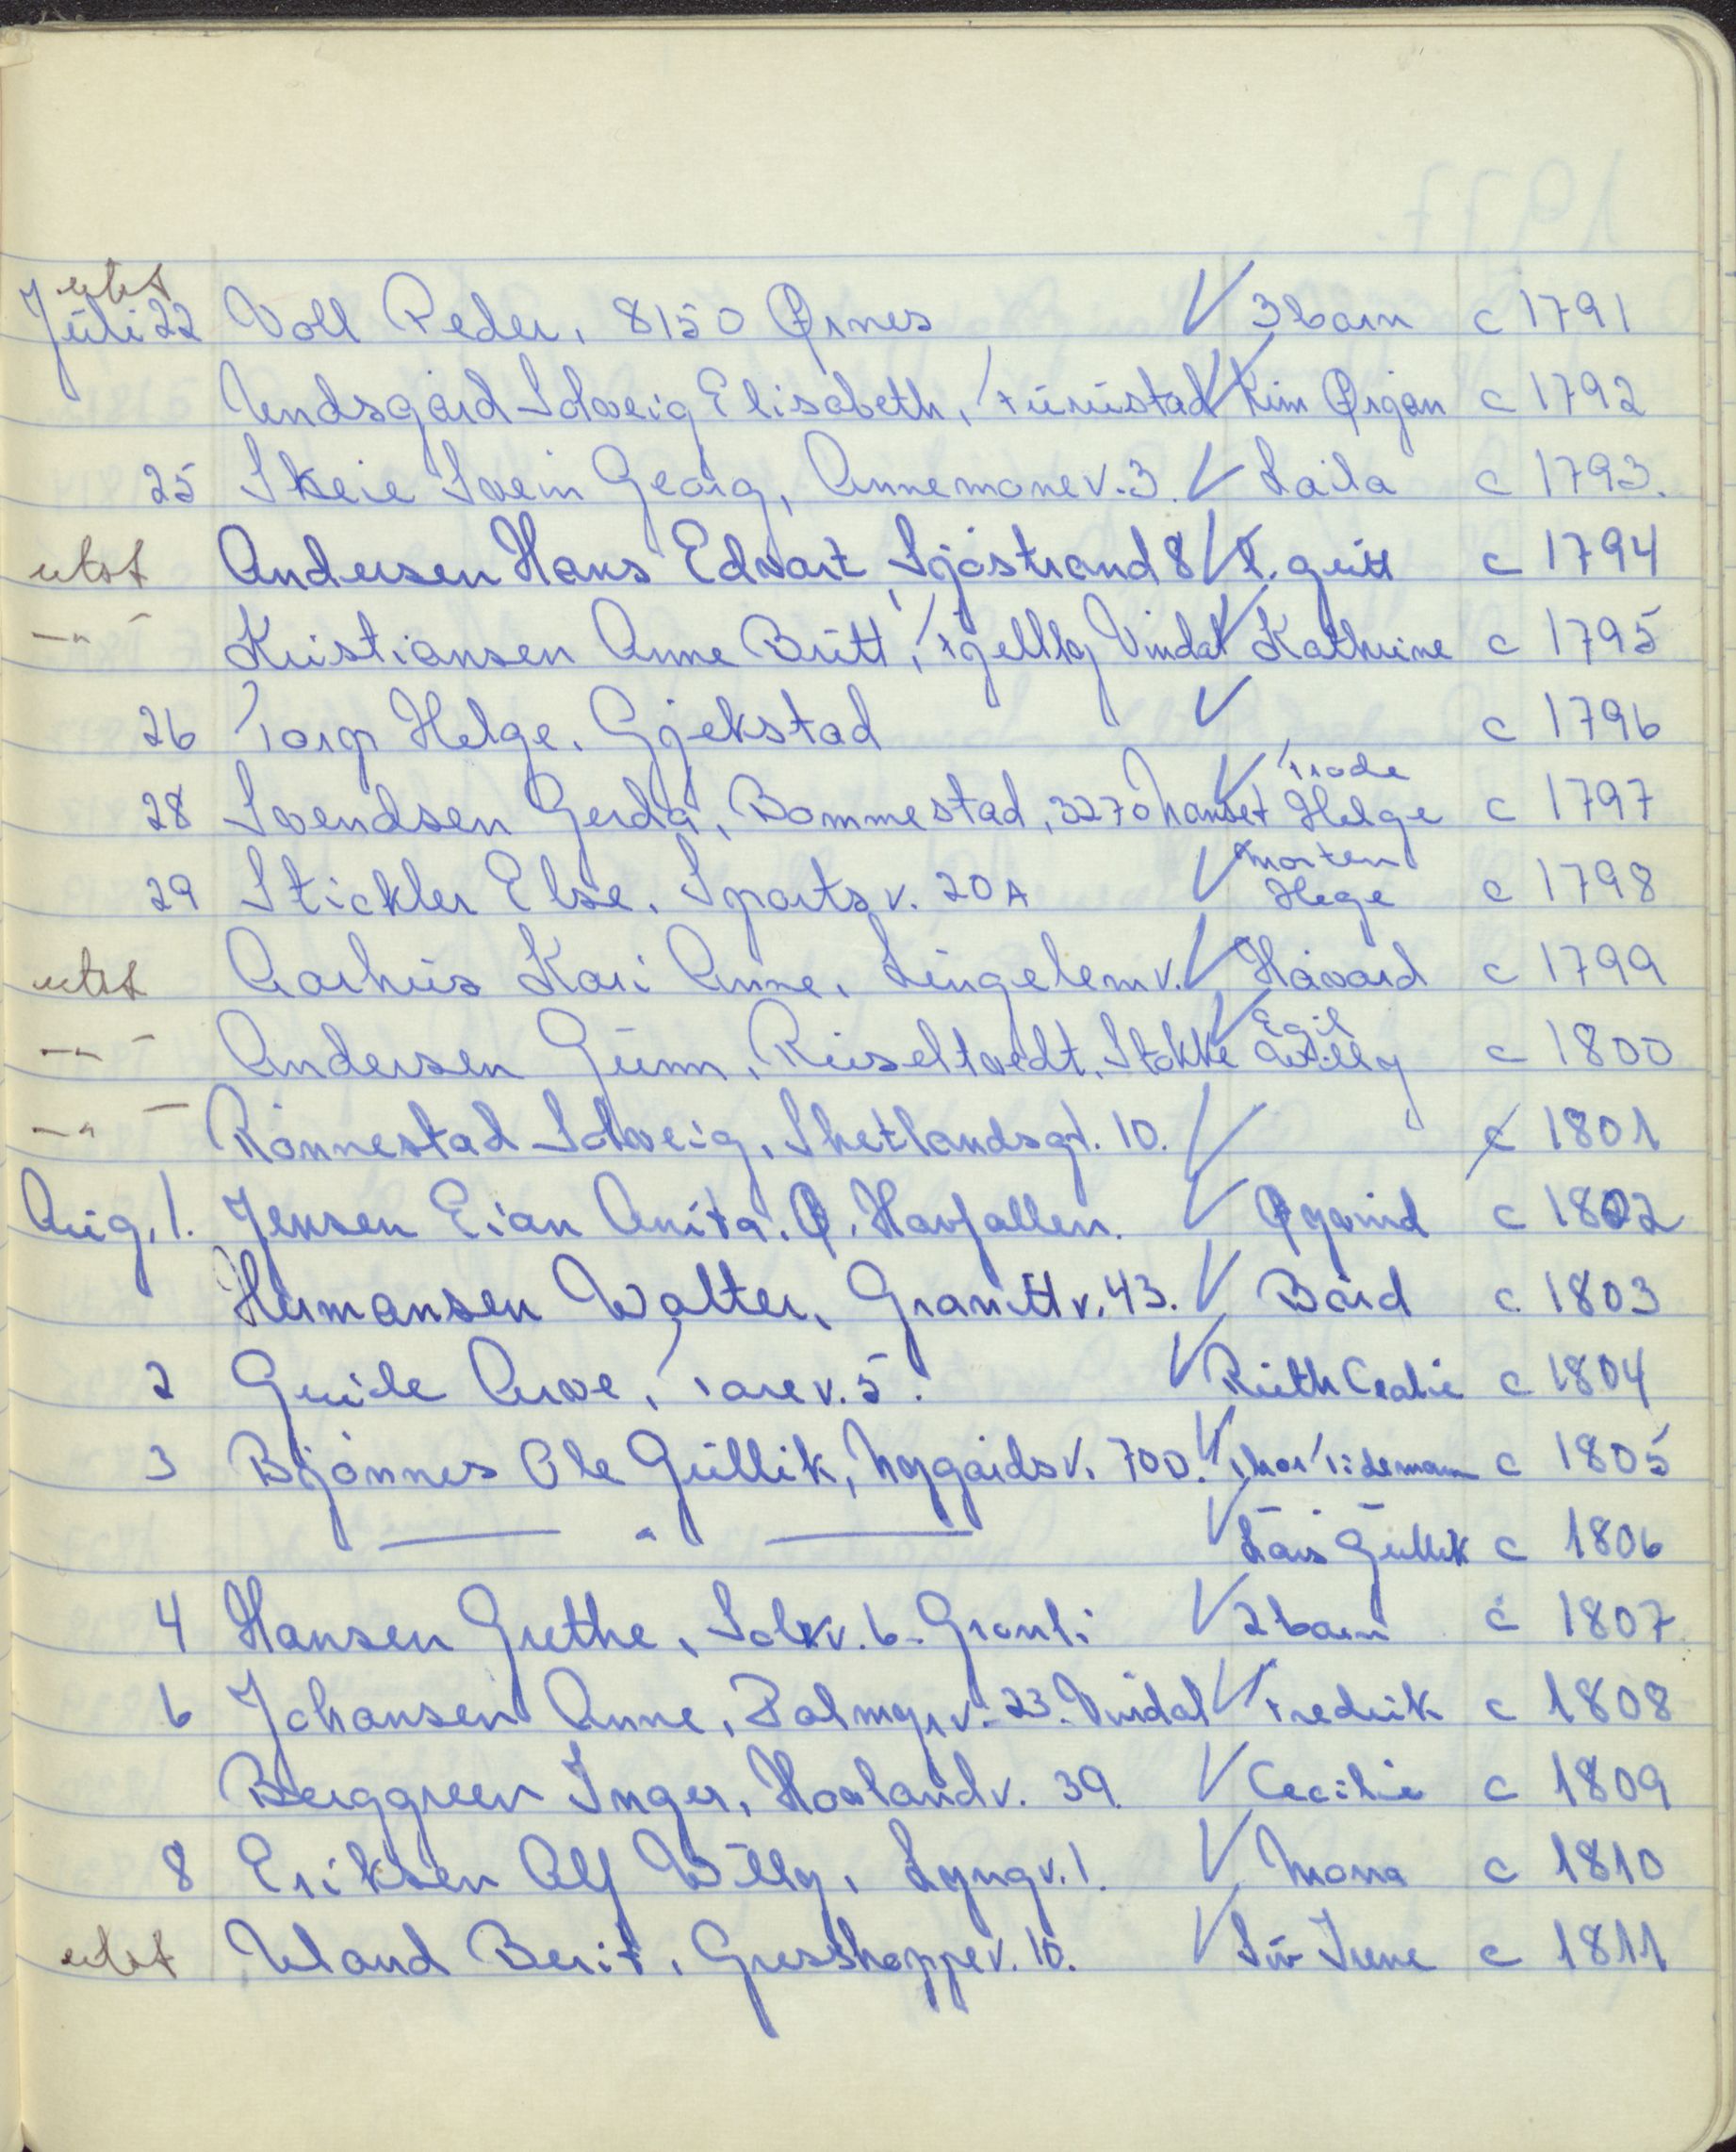 utst
Juli 22 Voll Peder, 8150 Ørnes √ 3 barn c 1791
Undsgård Solveig Elisabeth, Furustad √ Kim Ørjan c 1792
25 Skeie Svein Georg, Annemonev. 3. √ Laila c 1793.
utst Andersen Hans Edvart, Sjöstrand 8 √ c 1794
—"— Kristiansen Anne Britt, Vindal √ Kathrine c 1795
26 Torp Helge, Gjekstad √ c 1796
28 Svendsen Gerda, Bommestad, 3270 √ Frode Helge c 1797
29 Stickler Else, Sportsv. 20A √ Morten Hege c 1798
utst Aarhus Kari Anne, Lingelemv. √ Håvard c 1799
—"— Andersen Gunn, Ruseltvedt, Stokke √ Egil Willy c 1800
—"— Rönnestad Solveig, Shetlandsgt. 10. √ c 1801
Aug. 1. Jensen Eian Anita, Ø. Havjallen. √ Øyvind c 1802
Hermansen Walter, Granittv. 43. √ Bård c 1803
2 Guide Arve, Tarev. 5. √ Ruth Cealie c 1804
3 Bjönnes Ole Gullik, Nygårdsv. 700. √ Thor Tidemann c 1805
— " — √ Lars Gullik c 1806
4 Hansen Grethe, Solkv. 6 - Granli √ 2 barn c 1807
6 Johansen Anne, Palmeyrv. 23. Vindal √ Fredrik c 1808
Berggreen Inger, Haslandv. 39. √ Cecilie c 1809
8 Eriksen Alf Willy, Lyngv. 1. √ Mona c 1810
utst Uland Berit, Gresshoppev. 10. √ Siv Irene c 1811